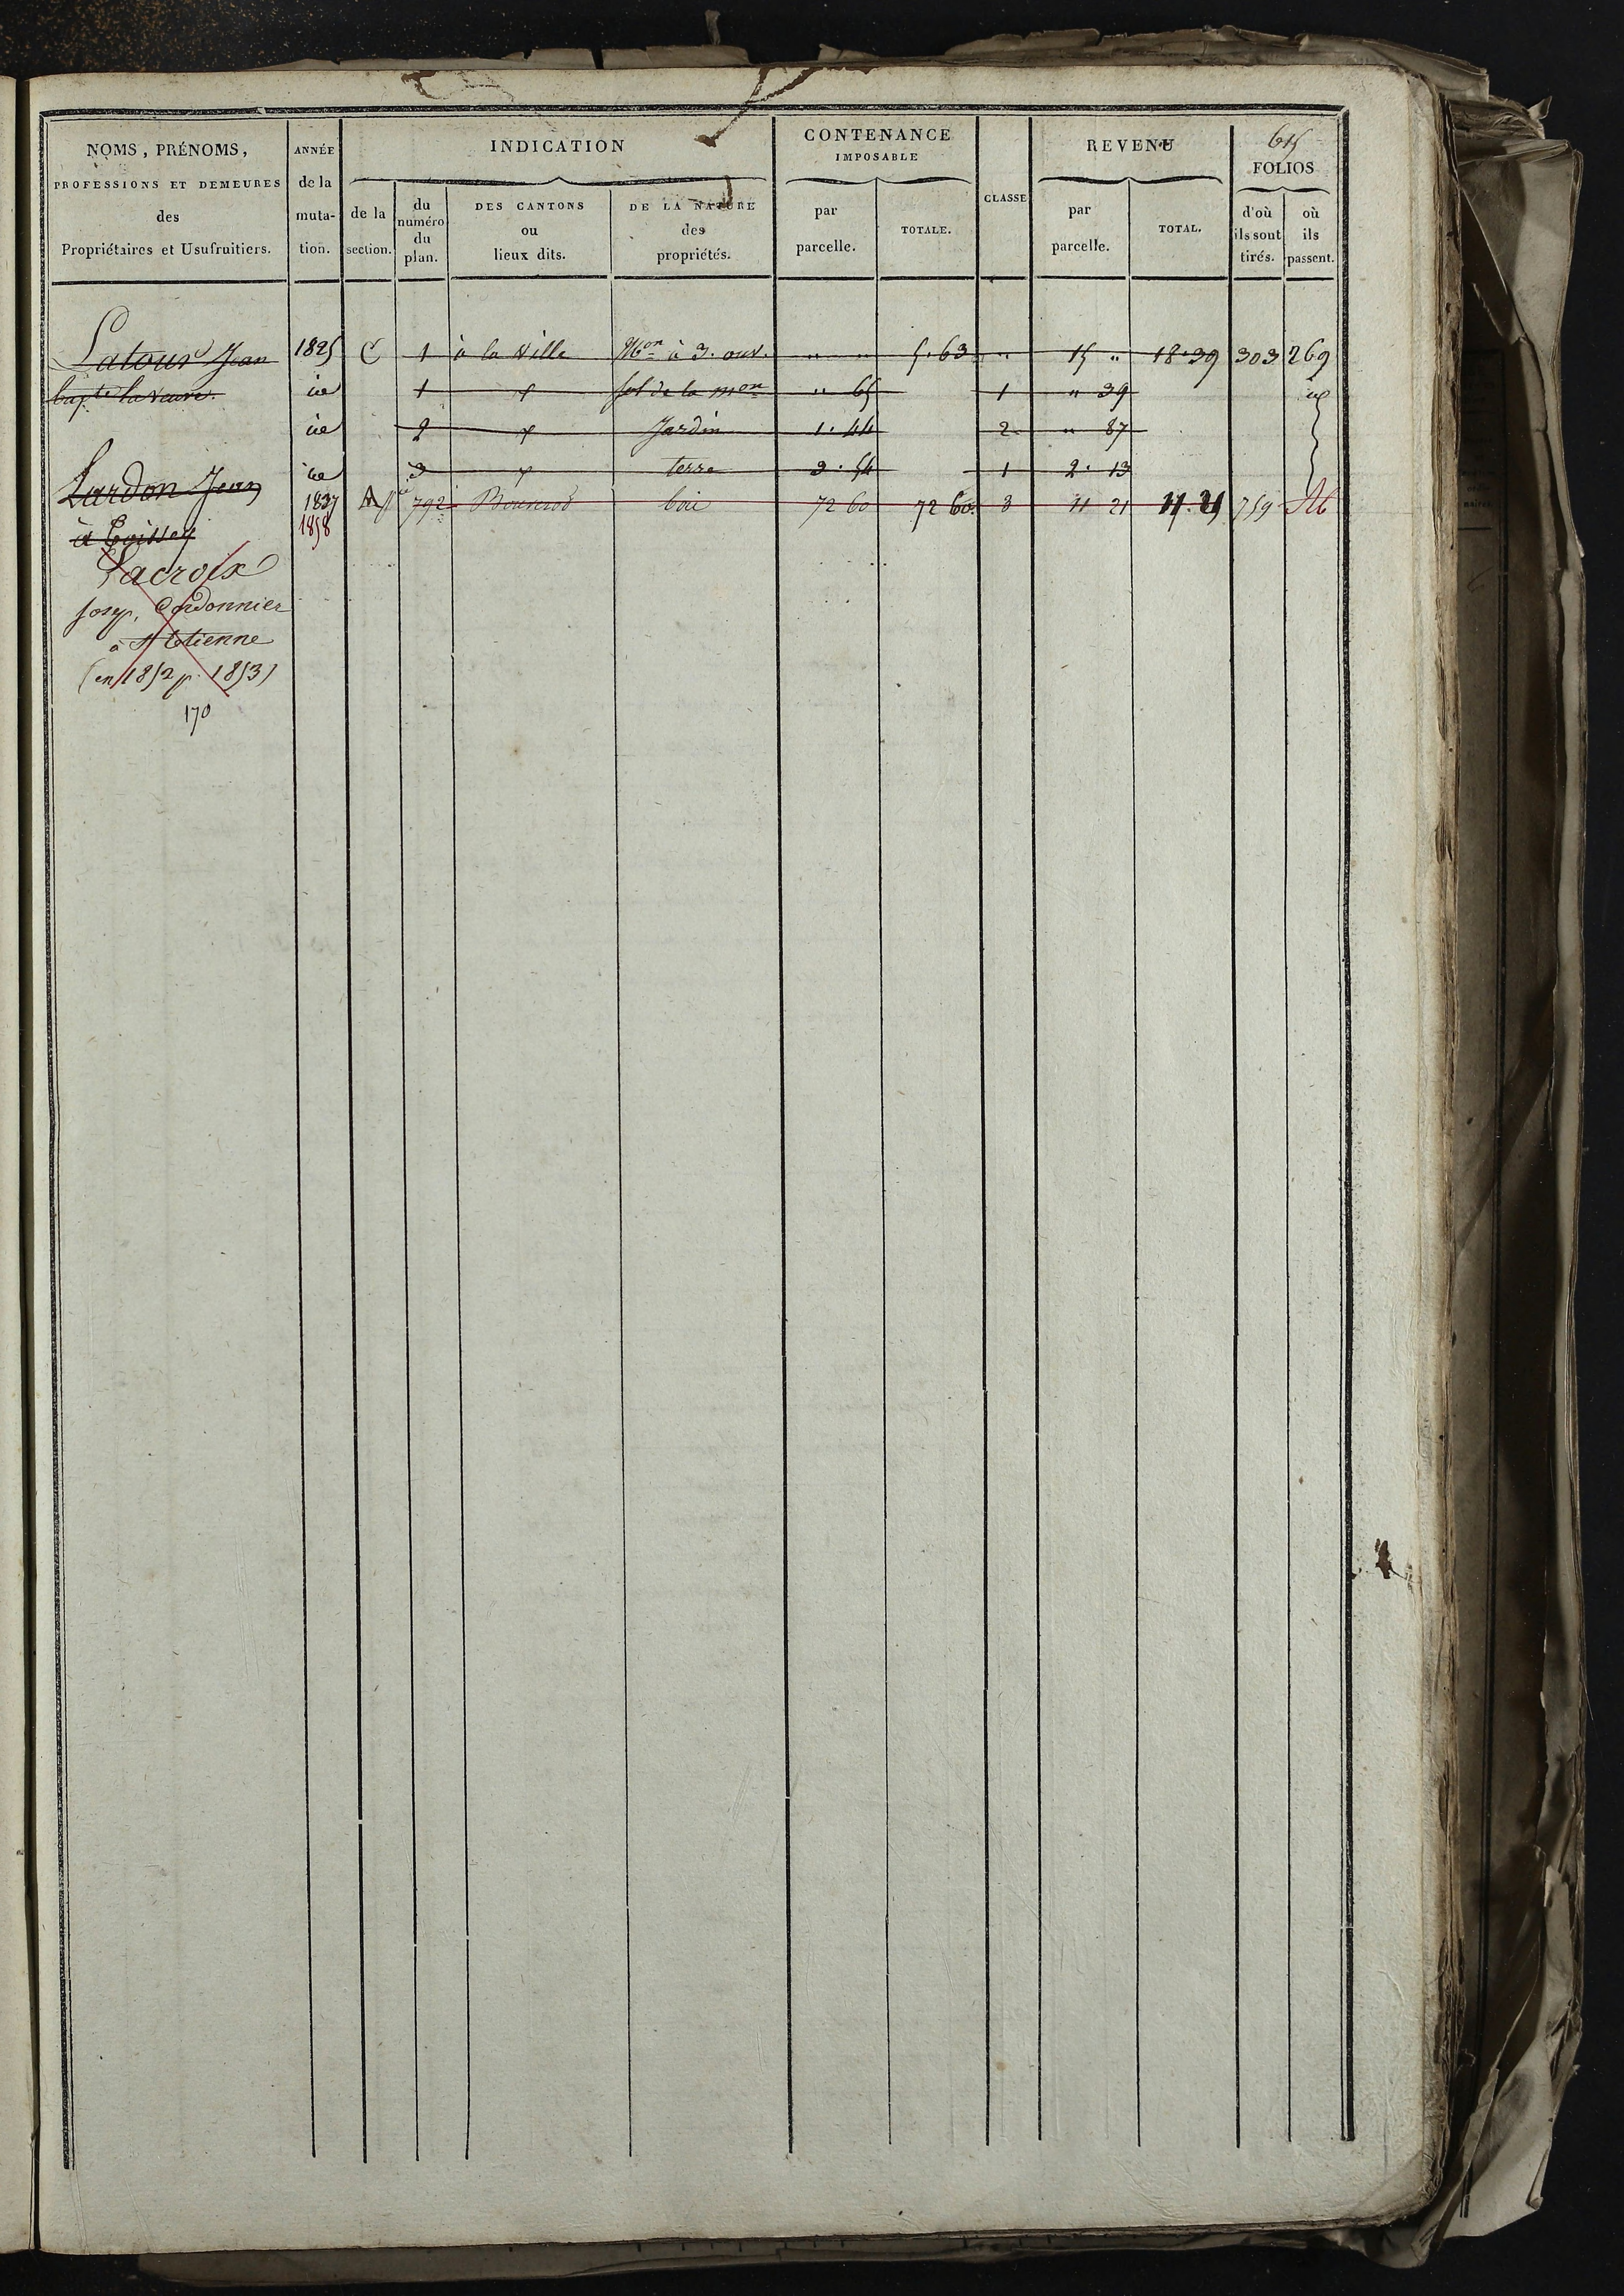 615
NOMS, PRÉNOMS, PROFESSIONS ET DEMEURES des Propriétaires et Usufruitiers.
ANNÉE de la muta- tion.
INDICATION
de la section.
du numéro du plan.
DES CANTONS ou lieux dits.
DE LA NATURE des propriétés.
CONTENANCE IMPOSABLE
par parcelle.
TOTALE.
CLASSE
REVENU
par parcelle.
TOTAL.
FOLIOS
d'où ils sont tirés.
où ils passent.
Latour Jean 1825 C 1 à la ville Mon à 3. ouv. " " 5.63 " 15 " 18.39 303 269
bapte la veuve. id 1 sol de la mon " 65 1 " 39 id
id 2 Jardin 1.44 2 " 87
id 3 terre 3.54 1 2.13
Lardon Jean 1837 792 bois 72 60 72 60 3 11 21 11.21 759
1858
à
Lacroix
Josep. Cordonnier
à St Etienne
(en 1852 p. 1853)
170